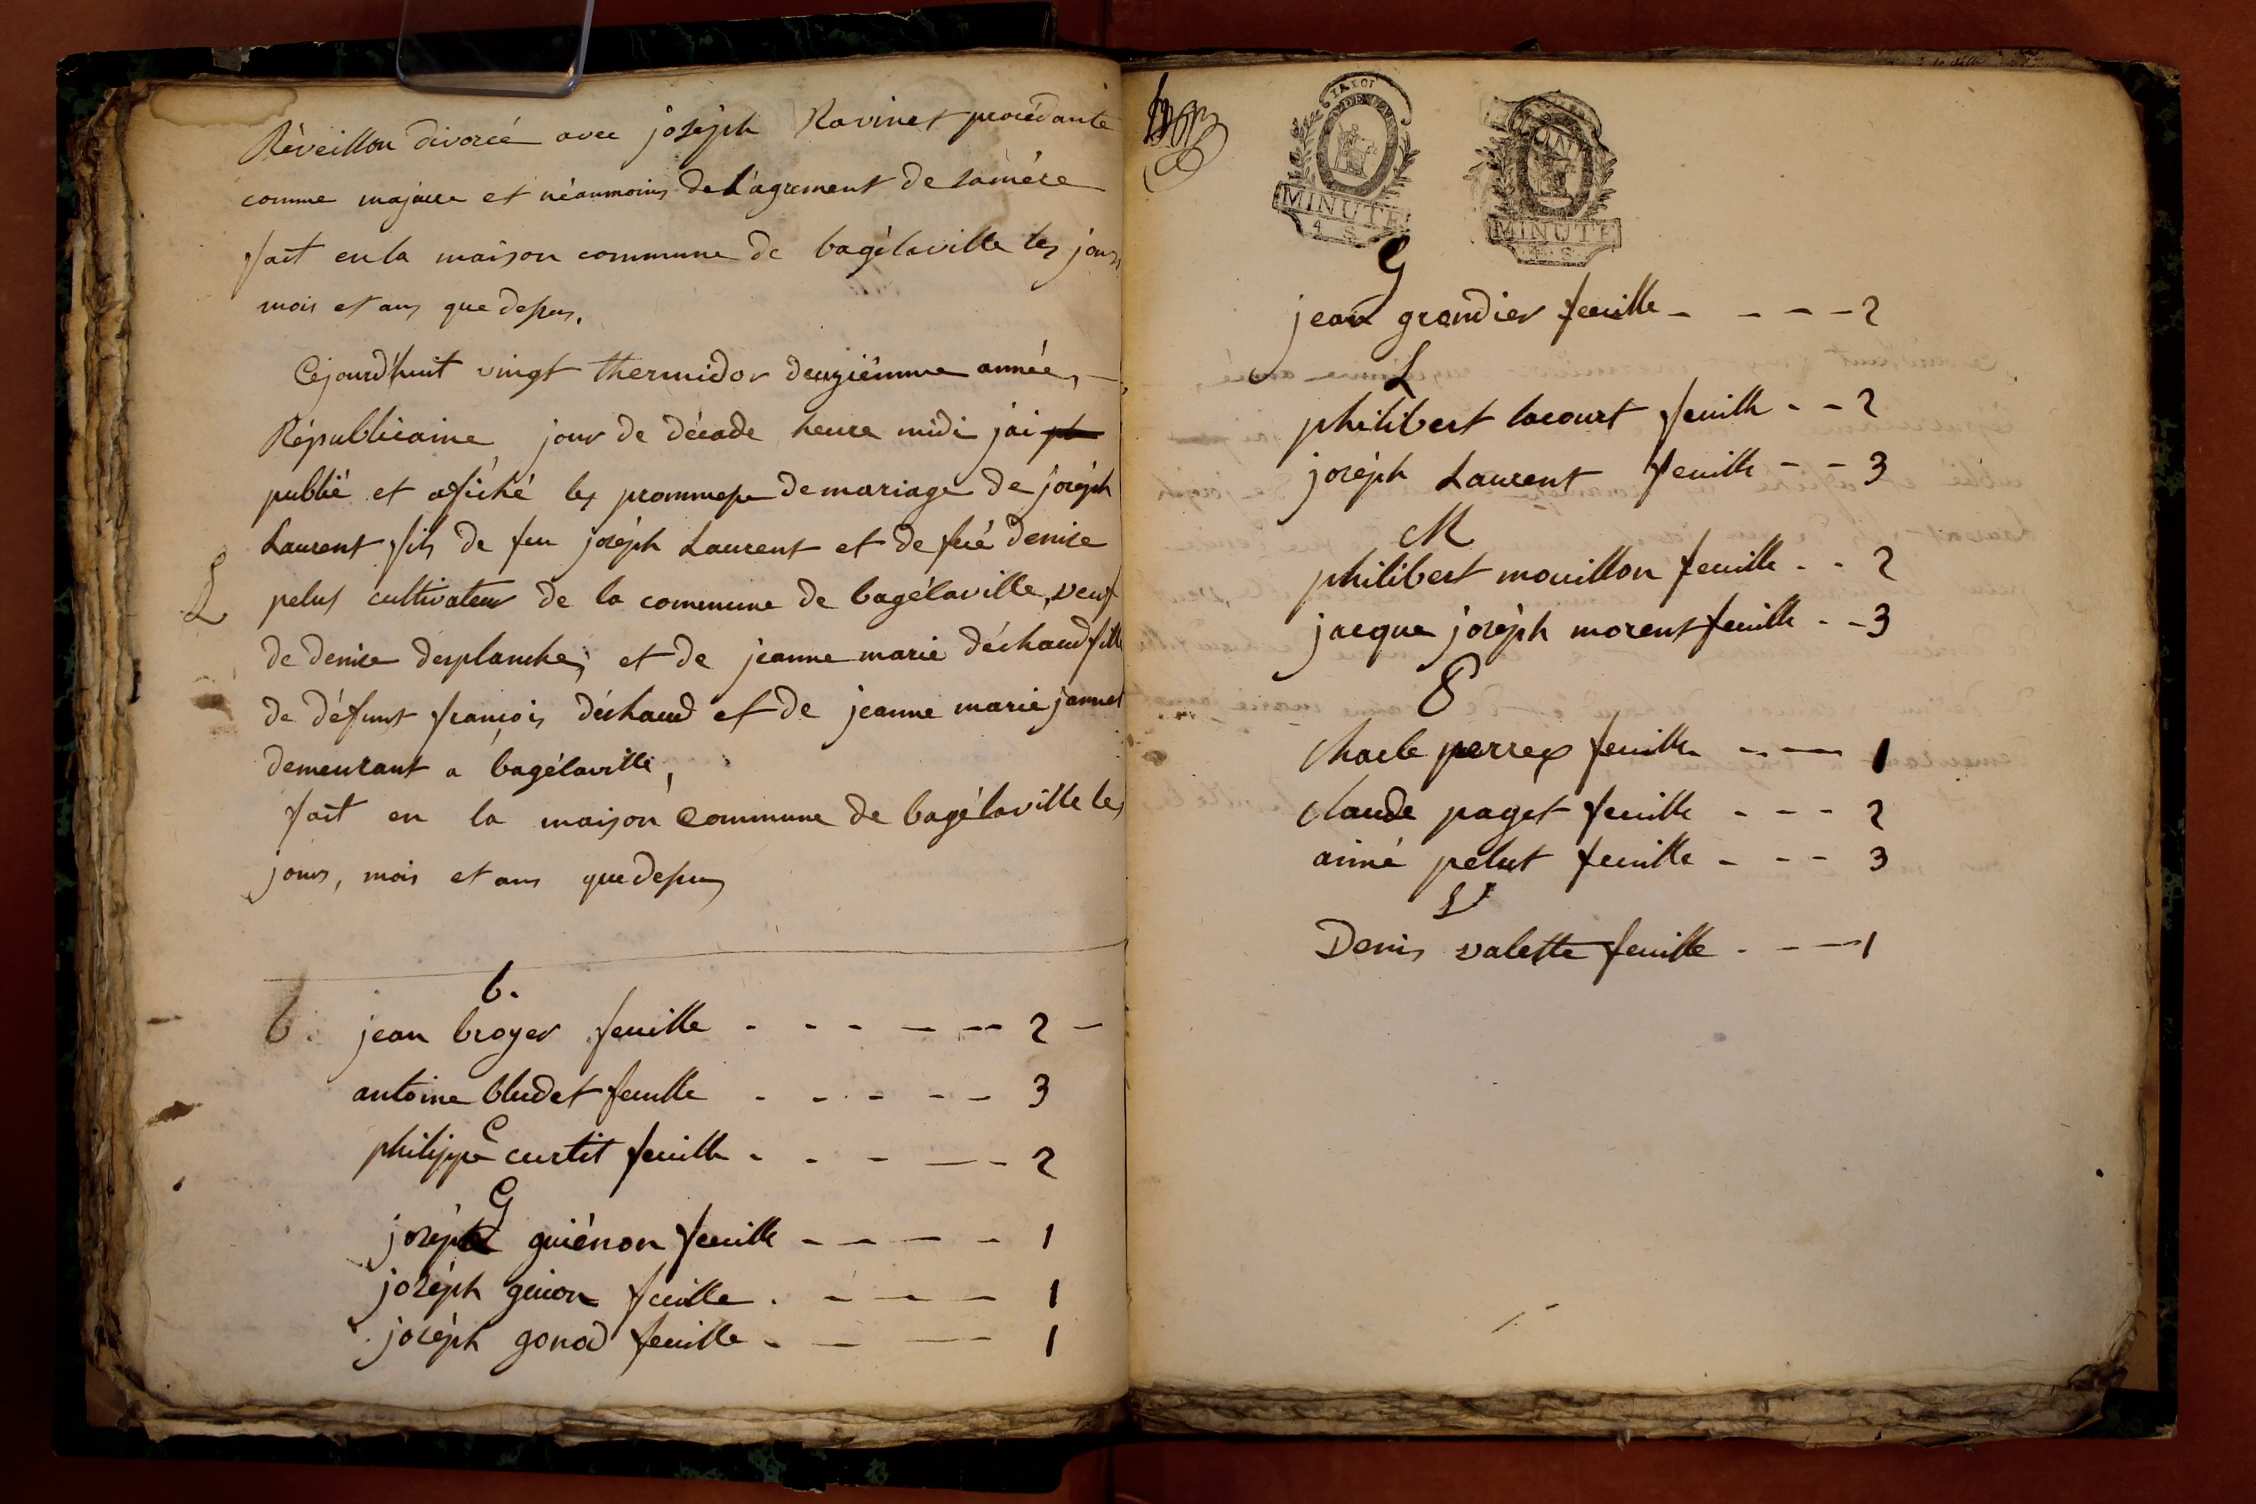 Réveillon divorcée avec joséph Ravinet procédante
comme majeure et néanmoins de L'agrement de samére
fait en la maison commune de bagélaville les jours
mois et ans que dessus.
Cejourd'huit vingt thermidor deuziémme année,
Républicaine jour de décade heure midi jai
publié et afiché les prommesse de mariage de joséph
Laurent fils de feu joséph Laurent et de feüe denise
pelus cultivateur de la commune de bagélaville, veuf
L
de denise desplanche, et de jeanne marie déchaud fille
de défunt françois déchaud et de jeanne marie jannet
demeurant a bagélaville,
fait en la maison Commune de bagélaville les
jours, mois et ans que dessus
b.
b. jean broyer feuille - - - - - 2 -
antoine bludet feuille - - - - - 3
C
philippe curtit feuille - - - - - 2
G
joséph guiénon feuille - - - - 1
joséph guion feuille - - - - 1
joséph gonod feuille - - - 1
LA LOI
MINUTE
4 S
MINUTE
4 S
G
jean grandier feuille - - - - 2
L
philibert lacourt feuille - - 2
joséph Laurent feuille - - 3
M
philibert mouillon feuille - - 2
jacque joséph morent feuille - - 3
P
Charle perrex feuille - - - 1
Claude paget feuille - - - 2
aimé pelut feuille - - - 3
V
Denis valette feuille - - - 1